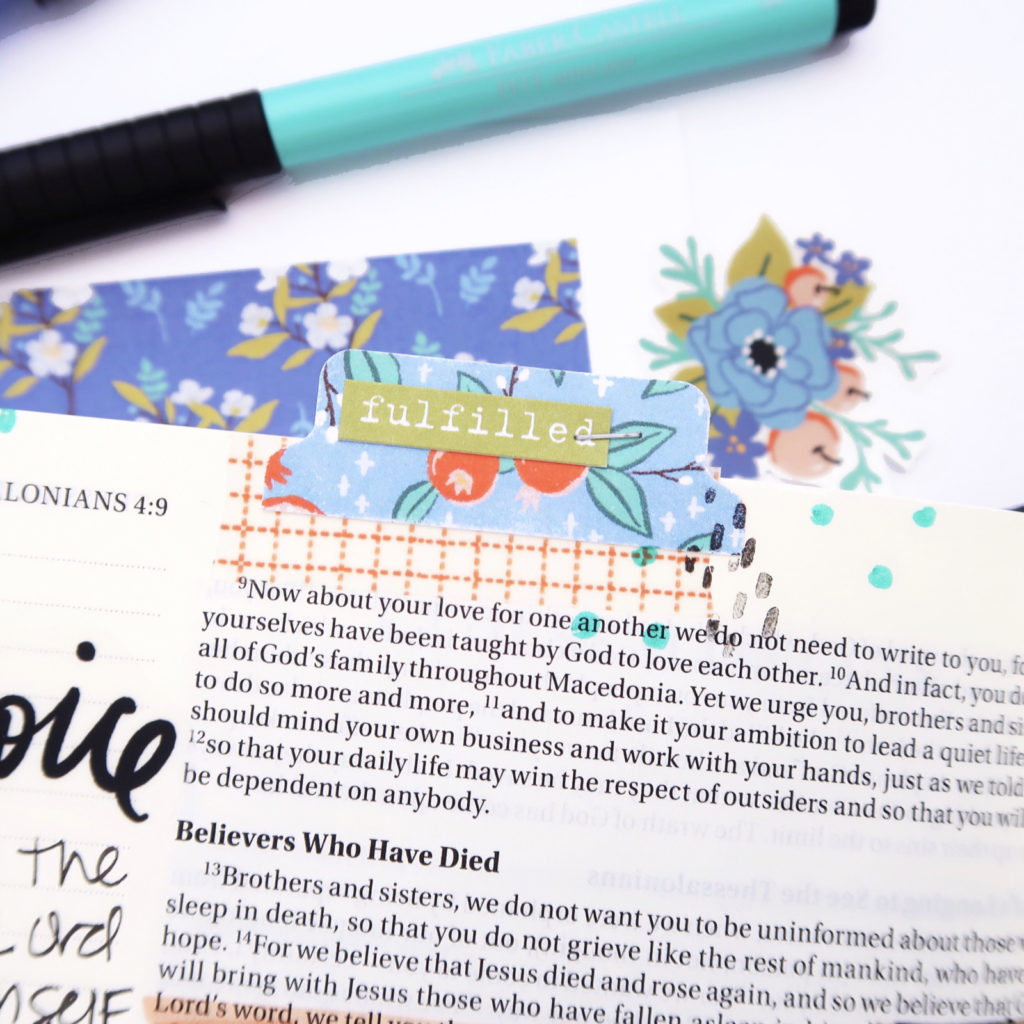 FABER-CASTELL
fulfilled
LONIANS 4:9
⁹Now about your love for one another we do not need to write to you,
yourselves have been taught by God to love each other. ¹⁰And in fact, you
all of God's family throughout Macedonia. Yet we urge you, brothers and
to do so more and more, ¹¹and to make it your ambition to lead a quiet life
should mind your own business and work with your hands, just as we told
¹²so that your daily life may win the respect of outsiders and so that you
be dependent on anybody.
Believers Who Have Died
¹³Brothers and sisters, we do not want you to be uninformed about those
sleep in death, so that you do not grieve like the rest of mankind, who have
hope. ¹⁴For we believe that Jesus died and rose again, and so we believe that
will bring with Jesus those who have fallen
Lord's word, we tell
oice
The
Lord
mself